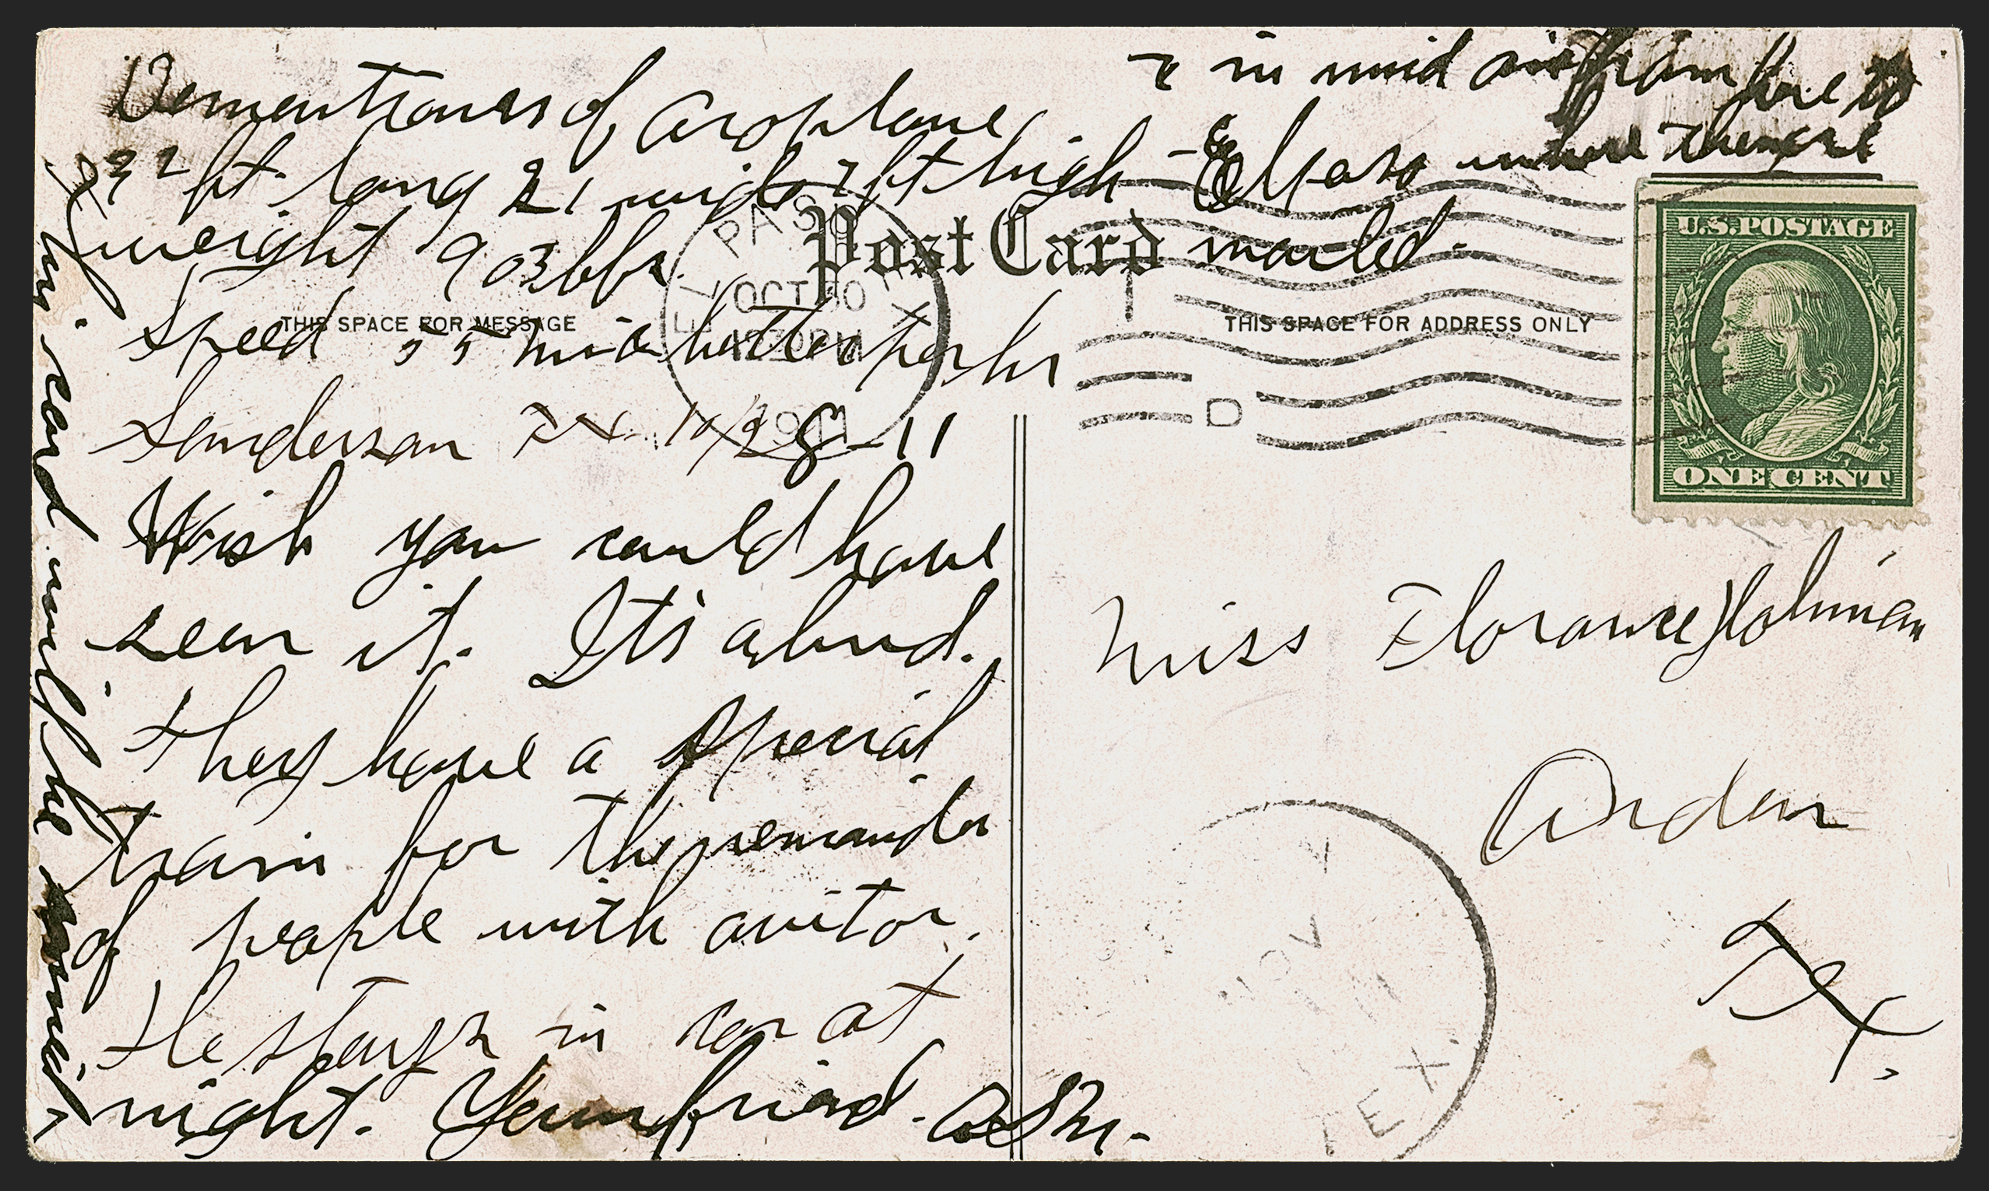 Dementiones of aroplane
32 ft. long 21 wide 7 ft high
weight 903 lbs.
Speed 55 mi a better per hr
Sanderson TX. 10/28-11
Wish you could have
seen it. It's a bird.
They have a special
train for the remainder
of people with avitor.
He stays in car at
night. Your friend.
This card will be carried
in mid air from here to
El Paso where they are
mailed.
Post Card
THIS SPACE FOR MESSAGE
THIS SPACE FOR ADDRESS ONLY
EL PASO TEX
OCT 30
12 30 PM
1911
D
U.S. POSTAGE
ONE CENT
Miss Florance Hohman
Arden
Tx.
NOV
TEX.